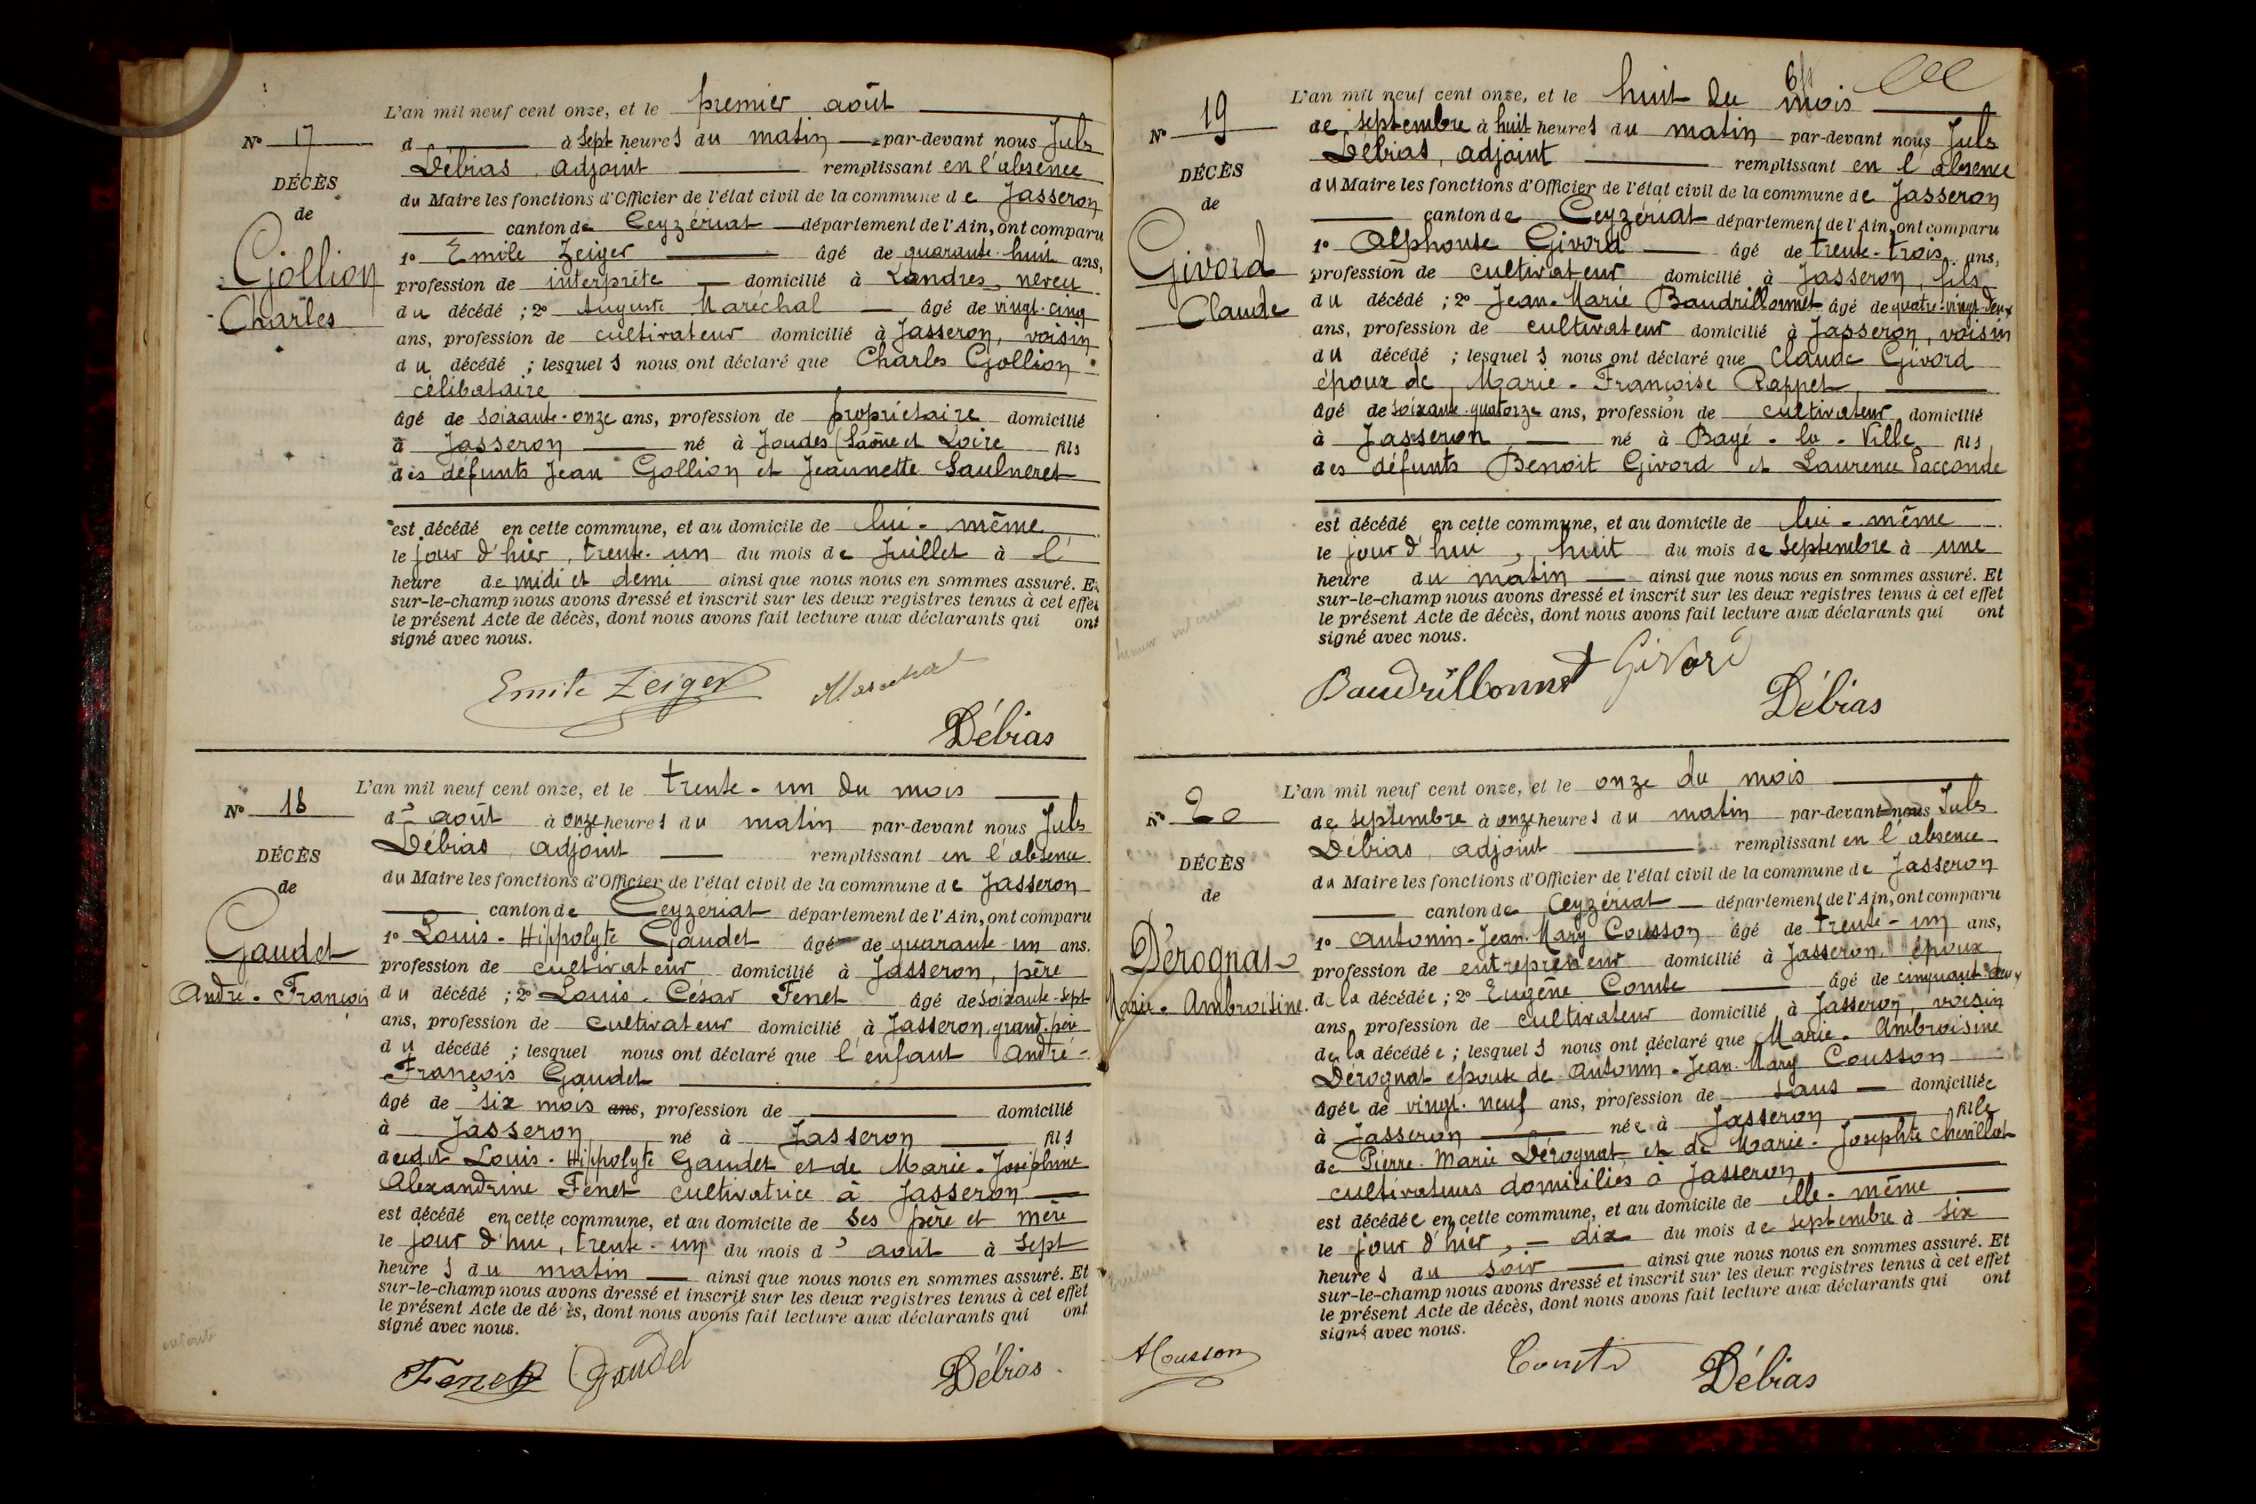 L'an mil neuf cent onze, et le premier août
N° 17
d à sept heures du matin par-devant nous Jules
Débias, adjoint remplissant en l'absence
DÉCÈS
du Maire les fonctions d'Officier de l'état civil de la commune de Jasseron
de
canton de Ceyzériat département de l'Ain, ont comparu
Gollion
Charles
1° Emile Zeiger âgé de quarante-huit ans,
profession de interprète domicilié à Londres, neveu
du décédé ; 2° Auguste Maréchal âgé de vingt-cinq
ans, profession de cultivateur domicilié à Jasseron, voisin
du décédé ; lesquels nous ont déclaré que Charles Gollion
célibataire
âgé de soixante-onze ans, profession de propriétaire domicilié
à Jasseron né à Joudes (Saône et Loire fils
des défunts Jean Gollion et Jeannette Saulneret
est décédé en cette commune, et au domicile de lui-même
le jour d'hier, trente-un du mois de Juillet à l'
heure de midi et demi ainsi que nous nous en sommes assuré. Et
sur-le-champ nous avons dressé et inscrit sur les deux registres tenus à cet effet
le présent Acte de décès, dont nous avons fait lecture aux déclarants qui ont
signé avec nous.
Emile Zeiger Marechal
Débias
L'an mil neuf cent onze, et le trente-un du mois
N° 18
d' août à onze heures du matin par-devant nous Jules
Débias, adjoint remplissant en l'absence
DÉCÈS
du Maire les fonctions d'Officier de l'état civil de la commune de Jasseron
de
canton de Ceyzeriat département de l'Ain, ont comparu
Gaudet
André-François
1° Louis-Hippolyte Gaudet âgé de quarante-un ans.
profession de cultivateur domicilié à Jasseron, père
du décédé ; 2° Louis-César Fenet âgé de soixante-sept
ans, profession de cultivateur domicilié à Jasseron, grand-père
du décédé ; lesquel nous ont déclaré que l'enfant André-
François Gaudet
âgé de six mois ans, profession de domicilié
à Jasseron né à Jasseron fils
dudit Louis-Hippolyte Gaudet et de Marie-Joséphine
Alexandrine Fenet cultivatrice à Jasseron
est décédé en cette commune, et au domicile de ses père et mère
le jour d'hui, trente-un du mois d' août à sept
heures du matin ainsi que nous nous en sommes assuré. Et
sur-le-champ nous avons dressé et inscrit sur les deux registres tenus à cet effet
le présent Acte de décès, dont nous avons fait lecture aux déclarants qui ont
signé avec nous.
Fenet Gaudet Débias
L'an mil neuf cent onze, et le huit du mois
N° 19
de septembre à huit heures du matin par-devant nous Jules
Débias, adjoint remplissant en l'absence
DÉCÈS
du Maire les fonctions d'Officier de l'état civil de la commune de Jasseron
de
canton de Ceyzériat département de l'Ain, ont comparu
Givord
Claude
1° Alphonse Givord âgé de trente-trois ans,
profession de cultivateur domicilié à Jasseron, fils
du décédé ; 2° Jean-Marie Baudrillonnet âgé de quatre-vingt-deux
ans, profession de cultivateur domicilié à Jasseron, voisin
du décédé ; lesquels nous ont déclaré que Claude Givord
époux de Marie-Françoise Pappet
âgé de soixante-quatorze ans, profession de cultivateur domicilié
à Jasseron né à Bagé-la-Ville fils
des défunts Benoit Givord et Laurence Pacconde
est décédé en cette commune, et au domicile de lui-même
le jour d'hui, huit du mois de septembre à une
heure du matin ainsi que nous nous en sommes assuré. Et
sur-le-champ nous avons dressé et inscrit sur les deux registres tenus à cet effet
le présent Acte de décès, dont nous avons fait lecture aux déclarants qui ont
signé avec nous.
Baudrillonnet Givord
Débias
L'an mil neuf cent onze, et le onze du mois
N° 20
de septembre à onze heures du matin par-devant nous Jules
Débias, adjoint remplissant en l'absence
DÉCÈS
du Maire les fonctions d'Officier de l'état civil de la commune de Jasseron
de
canton de Ceyzériat département de l'Ain, ont comparu
Dérognat
Marie-Ambroisine
1° Antonin-Jean-Mary Cousson âgé de trente-un ans,
profession de entrepreneur domicilié à Jasseron, époux
de la décédée ; 2° Eugène Comte âgé de cinquante-deux
ans, profession de cultivateur domicilié à Jasseron, voisin
de la décédée ; lesquels nous ont déclaré que Marie-Ambroisine
Dérognat épouse de Antonin-Jean-Mary Cousson
âgée de vingt-neuf ans, profession de sans domiciliée
à Jasseron née à Jasseron fille
de Pierre-Marie Dérognat et de Marie-Josephte Chevillot
cultivateurs domiciliés à Jasseron
est décédée en cette commune, et au domicile de elle-même
le jour d'hier, dix du mois de septembre à six
heures du soir ainsi que nous nous en sommes assuré. Et
sur-le-champ nous avons dressé et inscrit sur les deux registres tenus à cet effet
le présent Acte de décès, dont nous avons fait lecture aux déclarants qui ont
signé avec nous.
ACousson Comte Débias